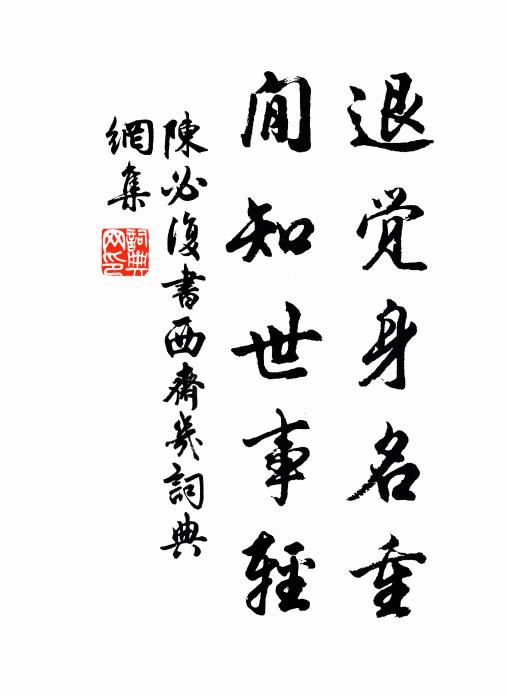 退觉身名重
閒知世事輕
陳必復書西齋几詞典
網集
詞典網印